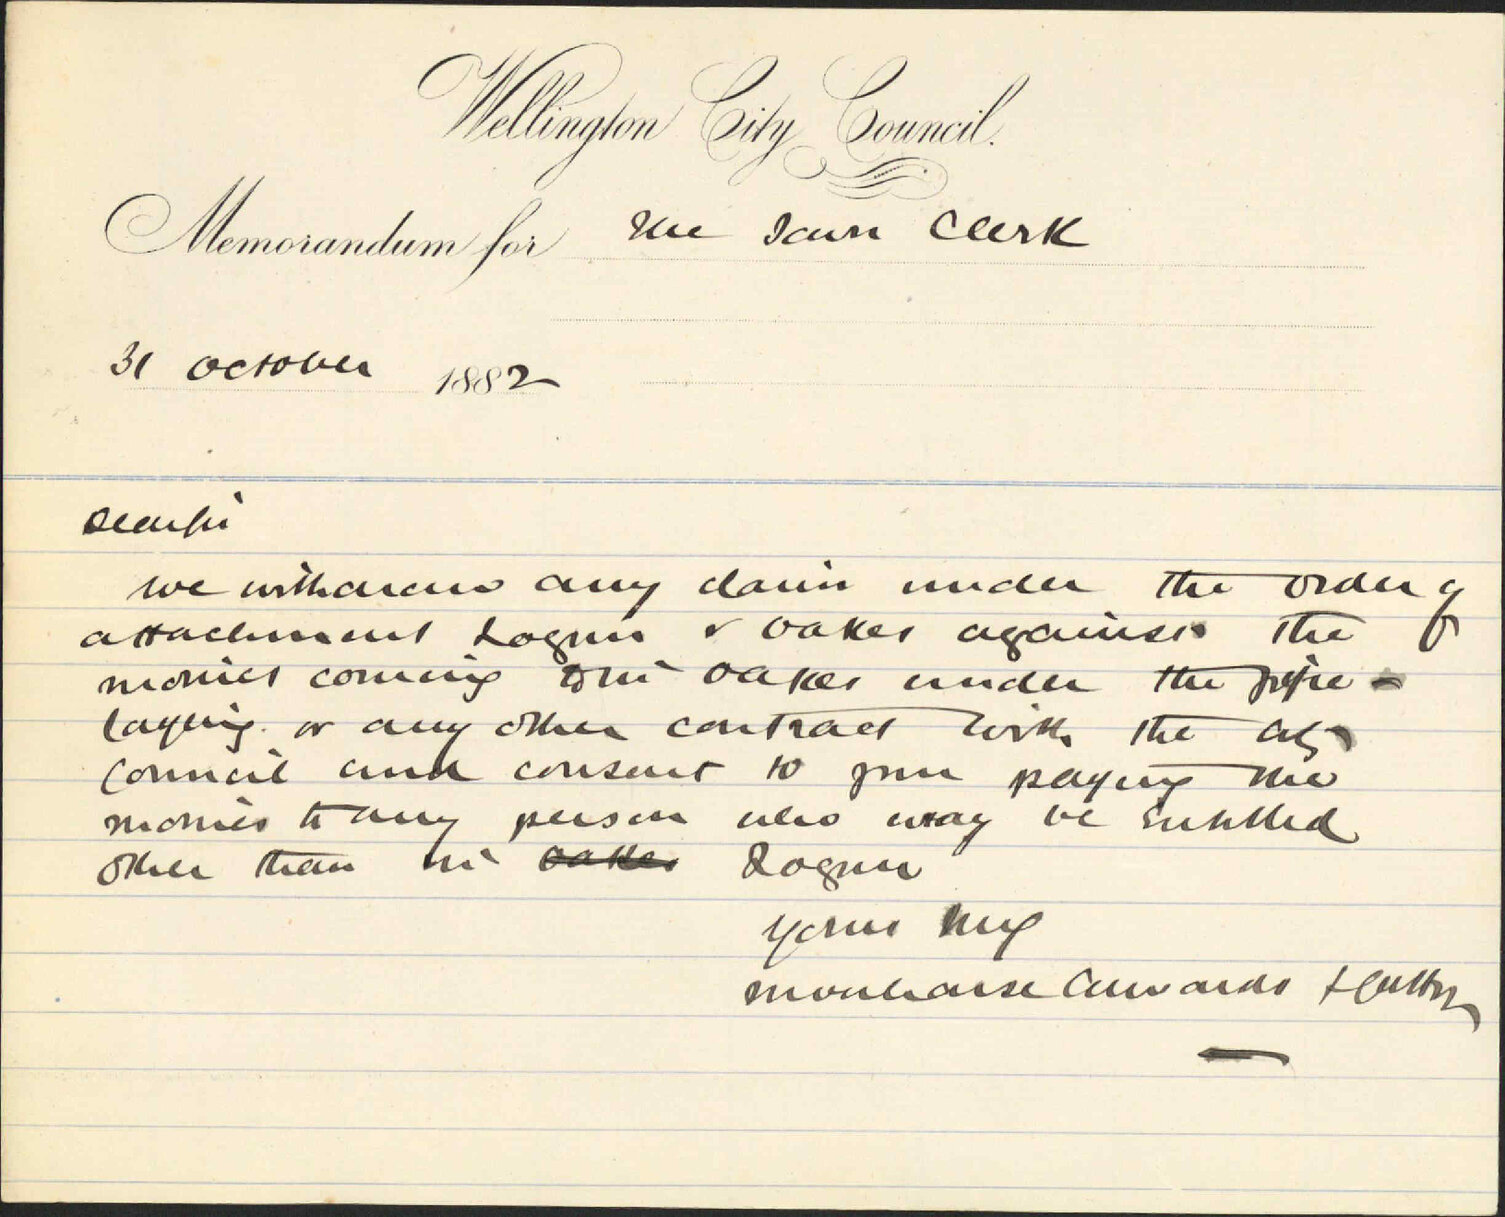 Wellington City Council.
Memorandum for The Town Clerk
31 October 1882
Dear Sir
We withdraw any claim under the order of
attachment Logun v Oakes against the
monies coming to Mr Oakes under the pipe-
laying or any other contract with the City
Council and consent to your paying the
monies to any person who may be entitled
other than Mr Oakes Logun
Yours truly
Moorhouse Edwards & Cutten